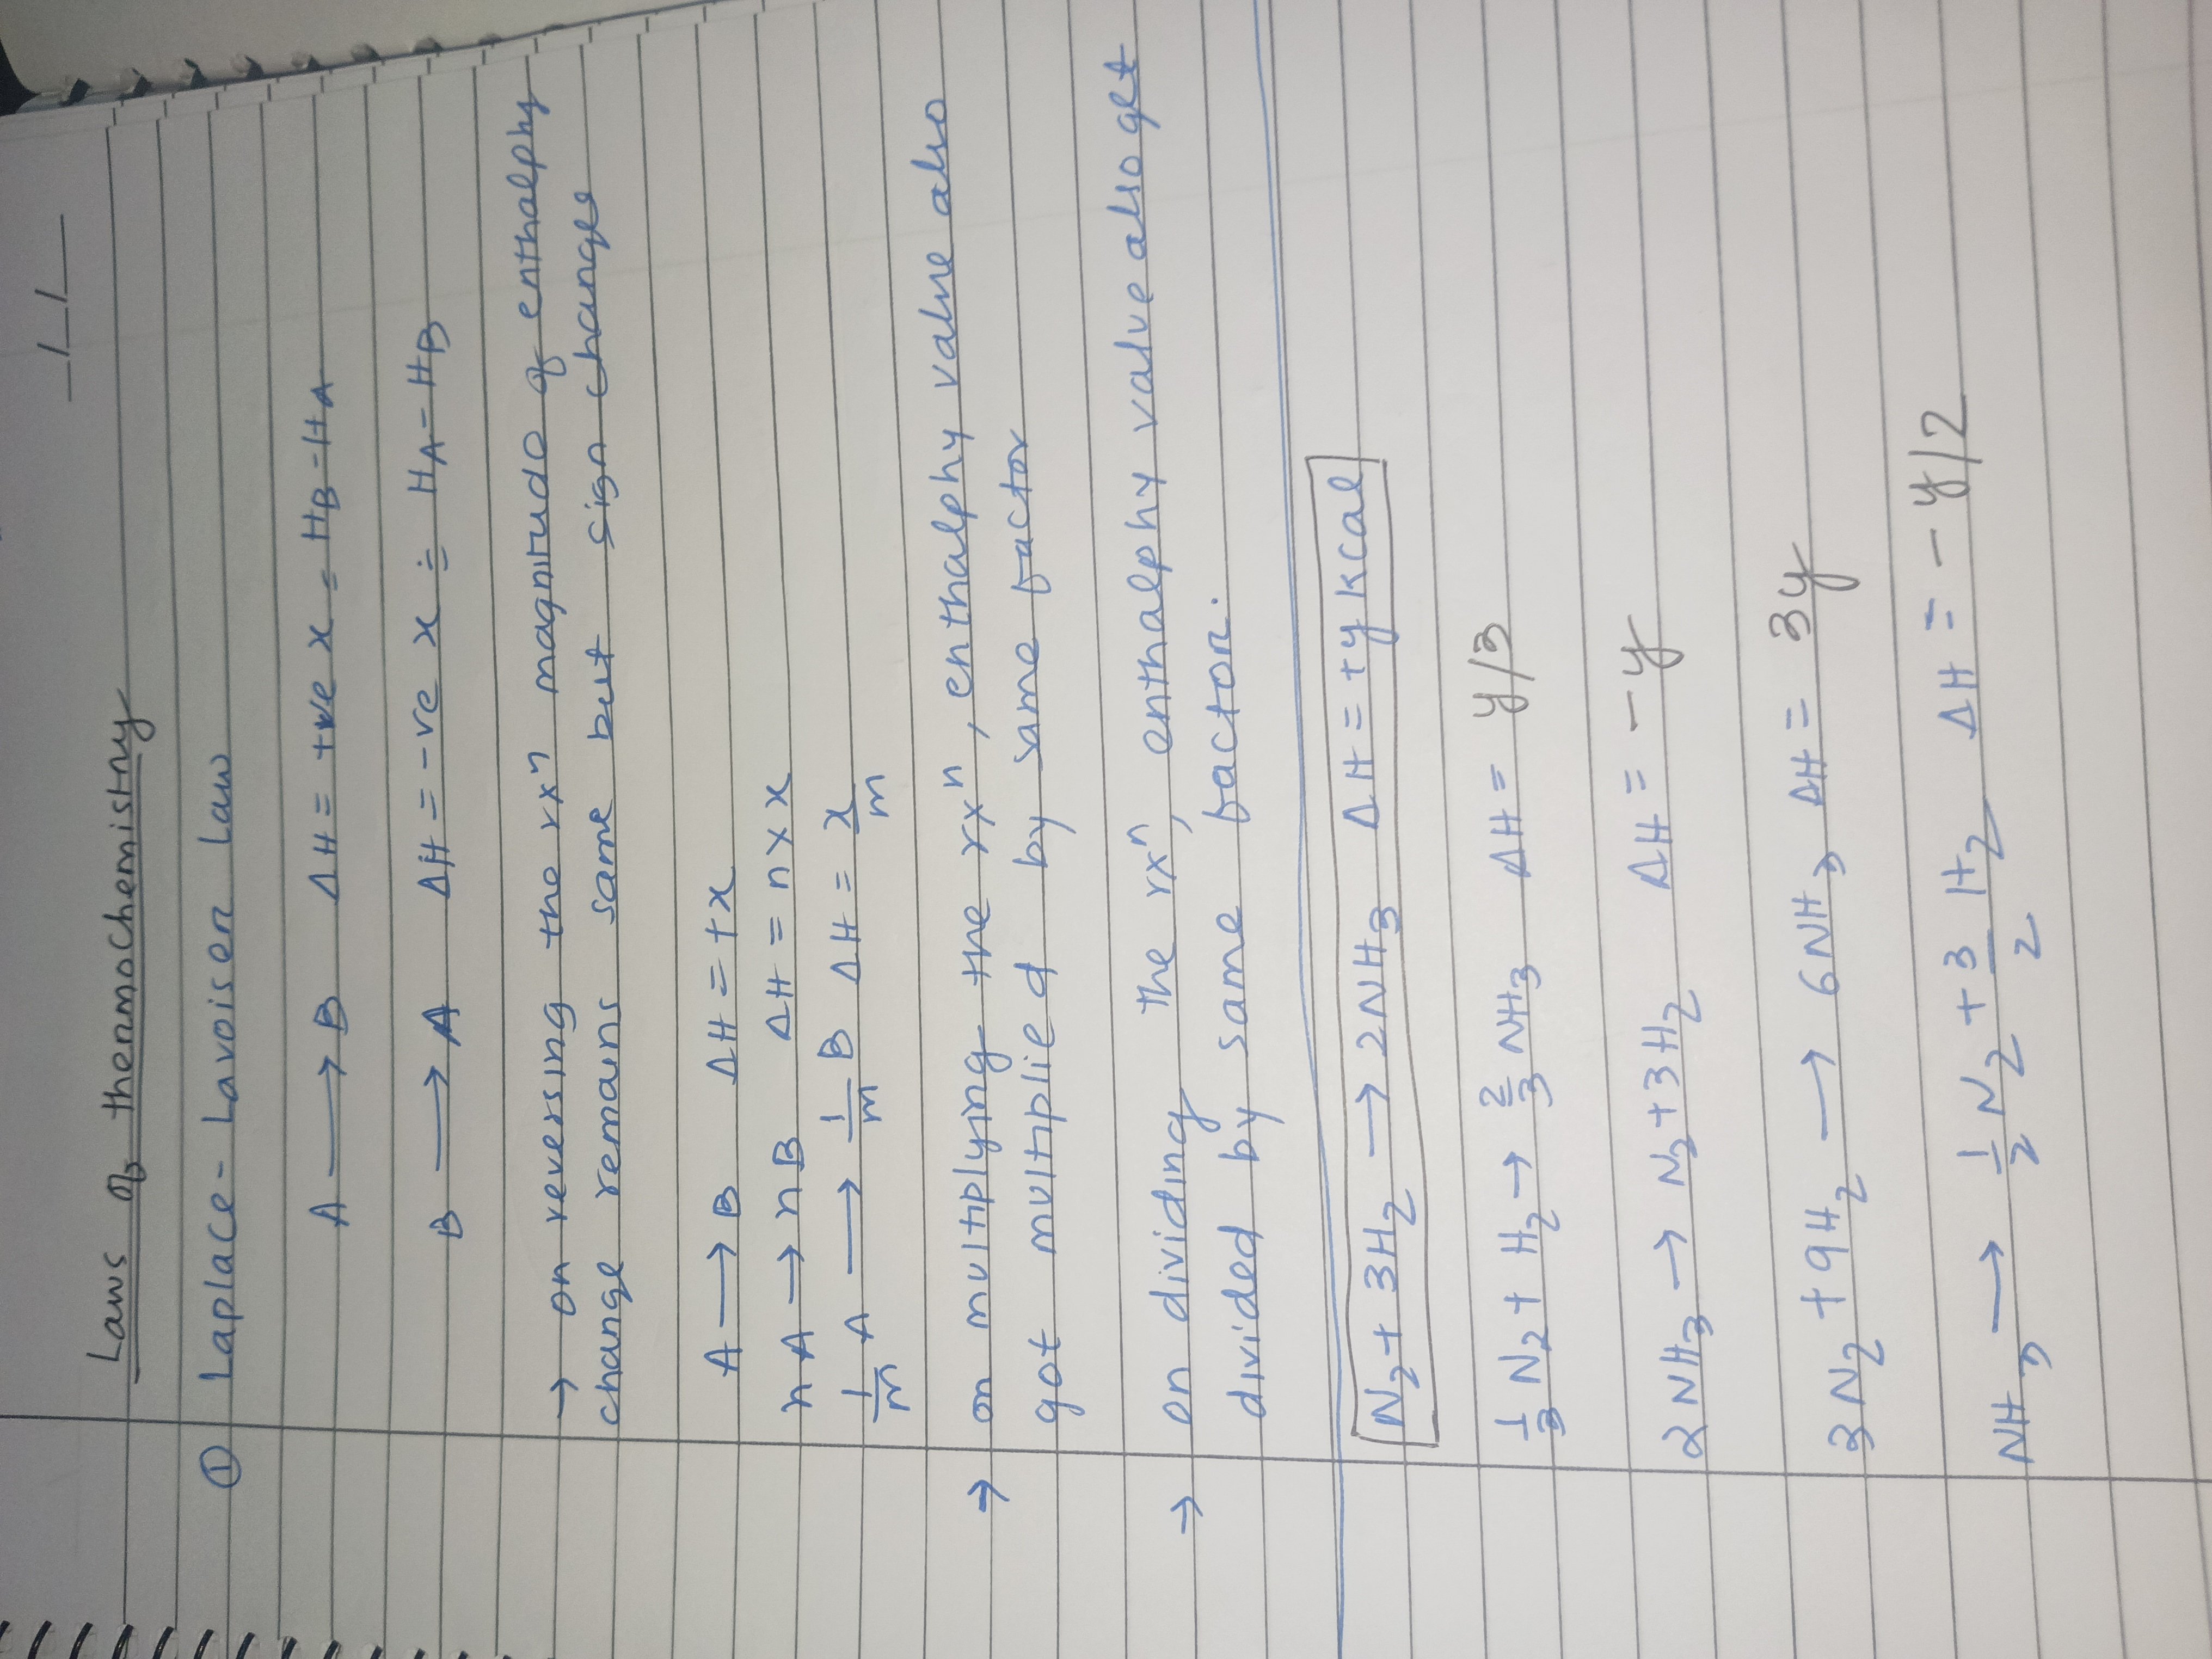 _/_/_
Laws of thermochemistry
① Laplace - Lavoiser Law
A → B ΔH = +ve x = H_B - H_A
B → A ΔH = -ve x = H_A - H_B
→ on reversing the rxⁿ magnitude of enthalphy
change remains same but sign changes
A → B ΔH = +x
nA → nB ΔH = n × x
1/m A → 1/m B ΔH = x/m
→ on multiplying the rxⁿ, enthalphy value also
got multiplied by same factor
→ on dividing the rxⁿ, enthalphy value also get
divided by same factor.
N₂ + 3H₂ → 2NH₃ ΔH = +y kcal
1/3 N₂ + H₂ → 2/3 NH₃ ΔH = y/3
2NH₃ → N₂ + 3H₂ ΔH = -y
3N₂ + 9H₂ → 6NH₃ ΔH = 3y
NH₃ → 1/2 N₂ + 3/2 H₂ ΔH = -y/2